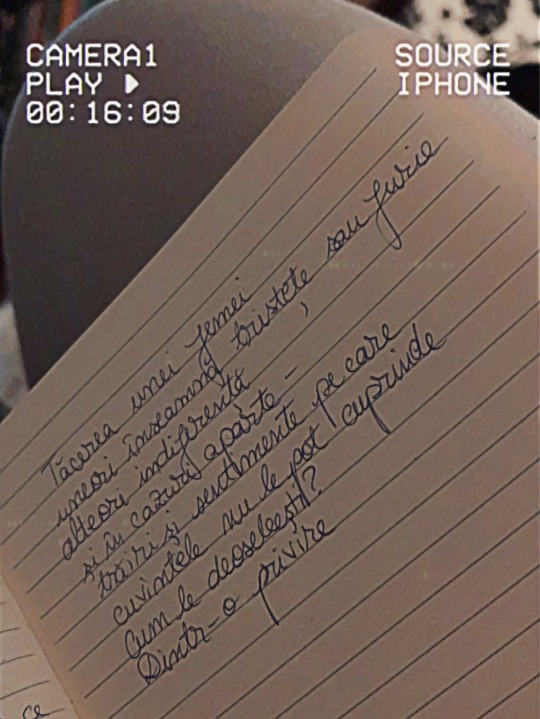 CAMERA1
PLAY
00:16:09
SOURCE
IPHONE
Tăcerea unei femei
uneori înseamnă tristețe sau furie
alteori indiferență,
și în cazuri aparte -
trăiri și sentimente pe care
cuvintele nu le pot cuprinde
Cum le deosebești?
Dintr-o privire
ce